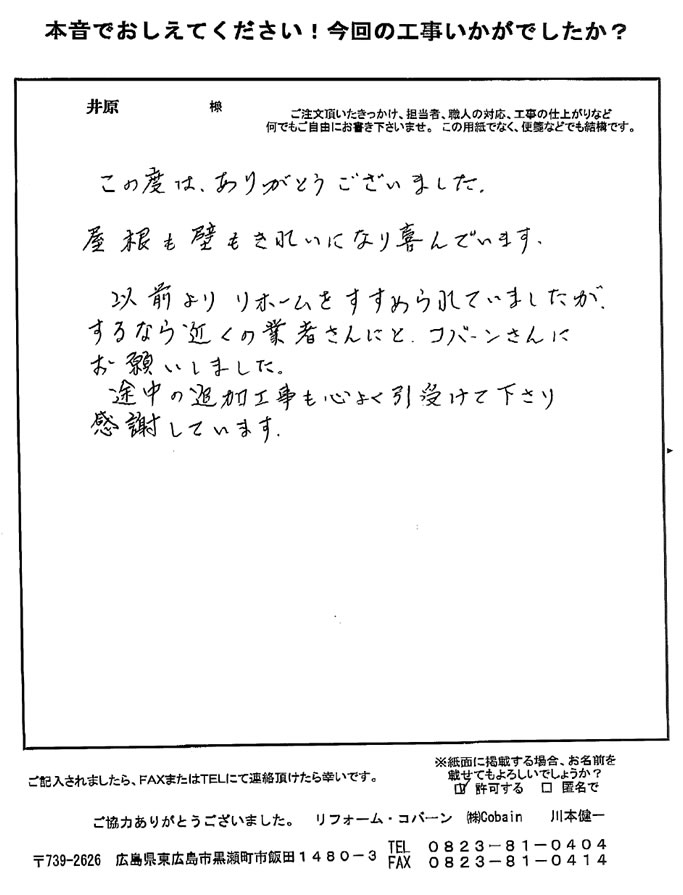 本音でおしえてください！今回の工事いかがでしたか？
井原 様
ご注文頂いたきっかけ、担当者、職人の対応、工事の仕上がりなど
何でもご自由にお書き下さいませ。この用紙でなく、便箋などでも結構です。
この度は、ありがとうございました。
屋根も壁もきれいになり喜んでいます。
以前より リホームをすすめられていましたが、
するなら近くの業者さんにと、コバーンさんに
お願いしました。
途中の追加工事も心よく引受けて下さり
感謝しています。
※紙面に掲載する場合、お名前を
載せてもよろしいでしょうか？
☑ 許可する □ 匿名で
ご記入されましたら、FAXまたはTELにて連絡頂けたら幸いです。
ご協力ありがとうございました。 リフォーム・コバーン ㈱Cobain 川本健一
〒739-2626 広島県東広島市黒瀬町市飯田１４８０－３
TEL ０８２３－８１－０４０４
FAX ０８２３－８１－０４１４